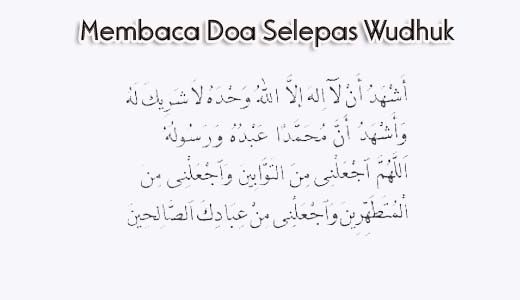 Membaca Doa Selepas Wudhuk
أَشْهَدُ أَنْ لَآ إِلهَ إِلاَّ اللهُ وَحْدَهُ لاَ شَرِيكَ لَهُ
وَأَشْهَدُ أَنَّ مُحَمَّدًا عَبْدُهُ وَرَسُولُهُ
اَللَّهُمَّ ٱجْعَلْنِى مِنَ التَّوَّابِينَ وَٱجْعَلْنِى مِنَ
ٱلْمُتَطَهِّرِينَ وَٱجْعَلْنِى مِنْ عِبَادِكَ ٱلصَّالِحِينَ